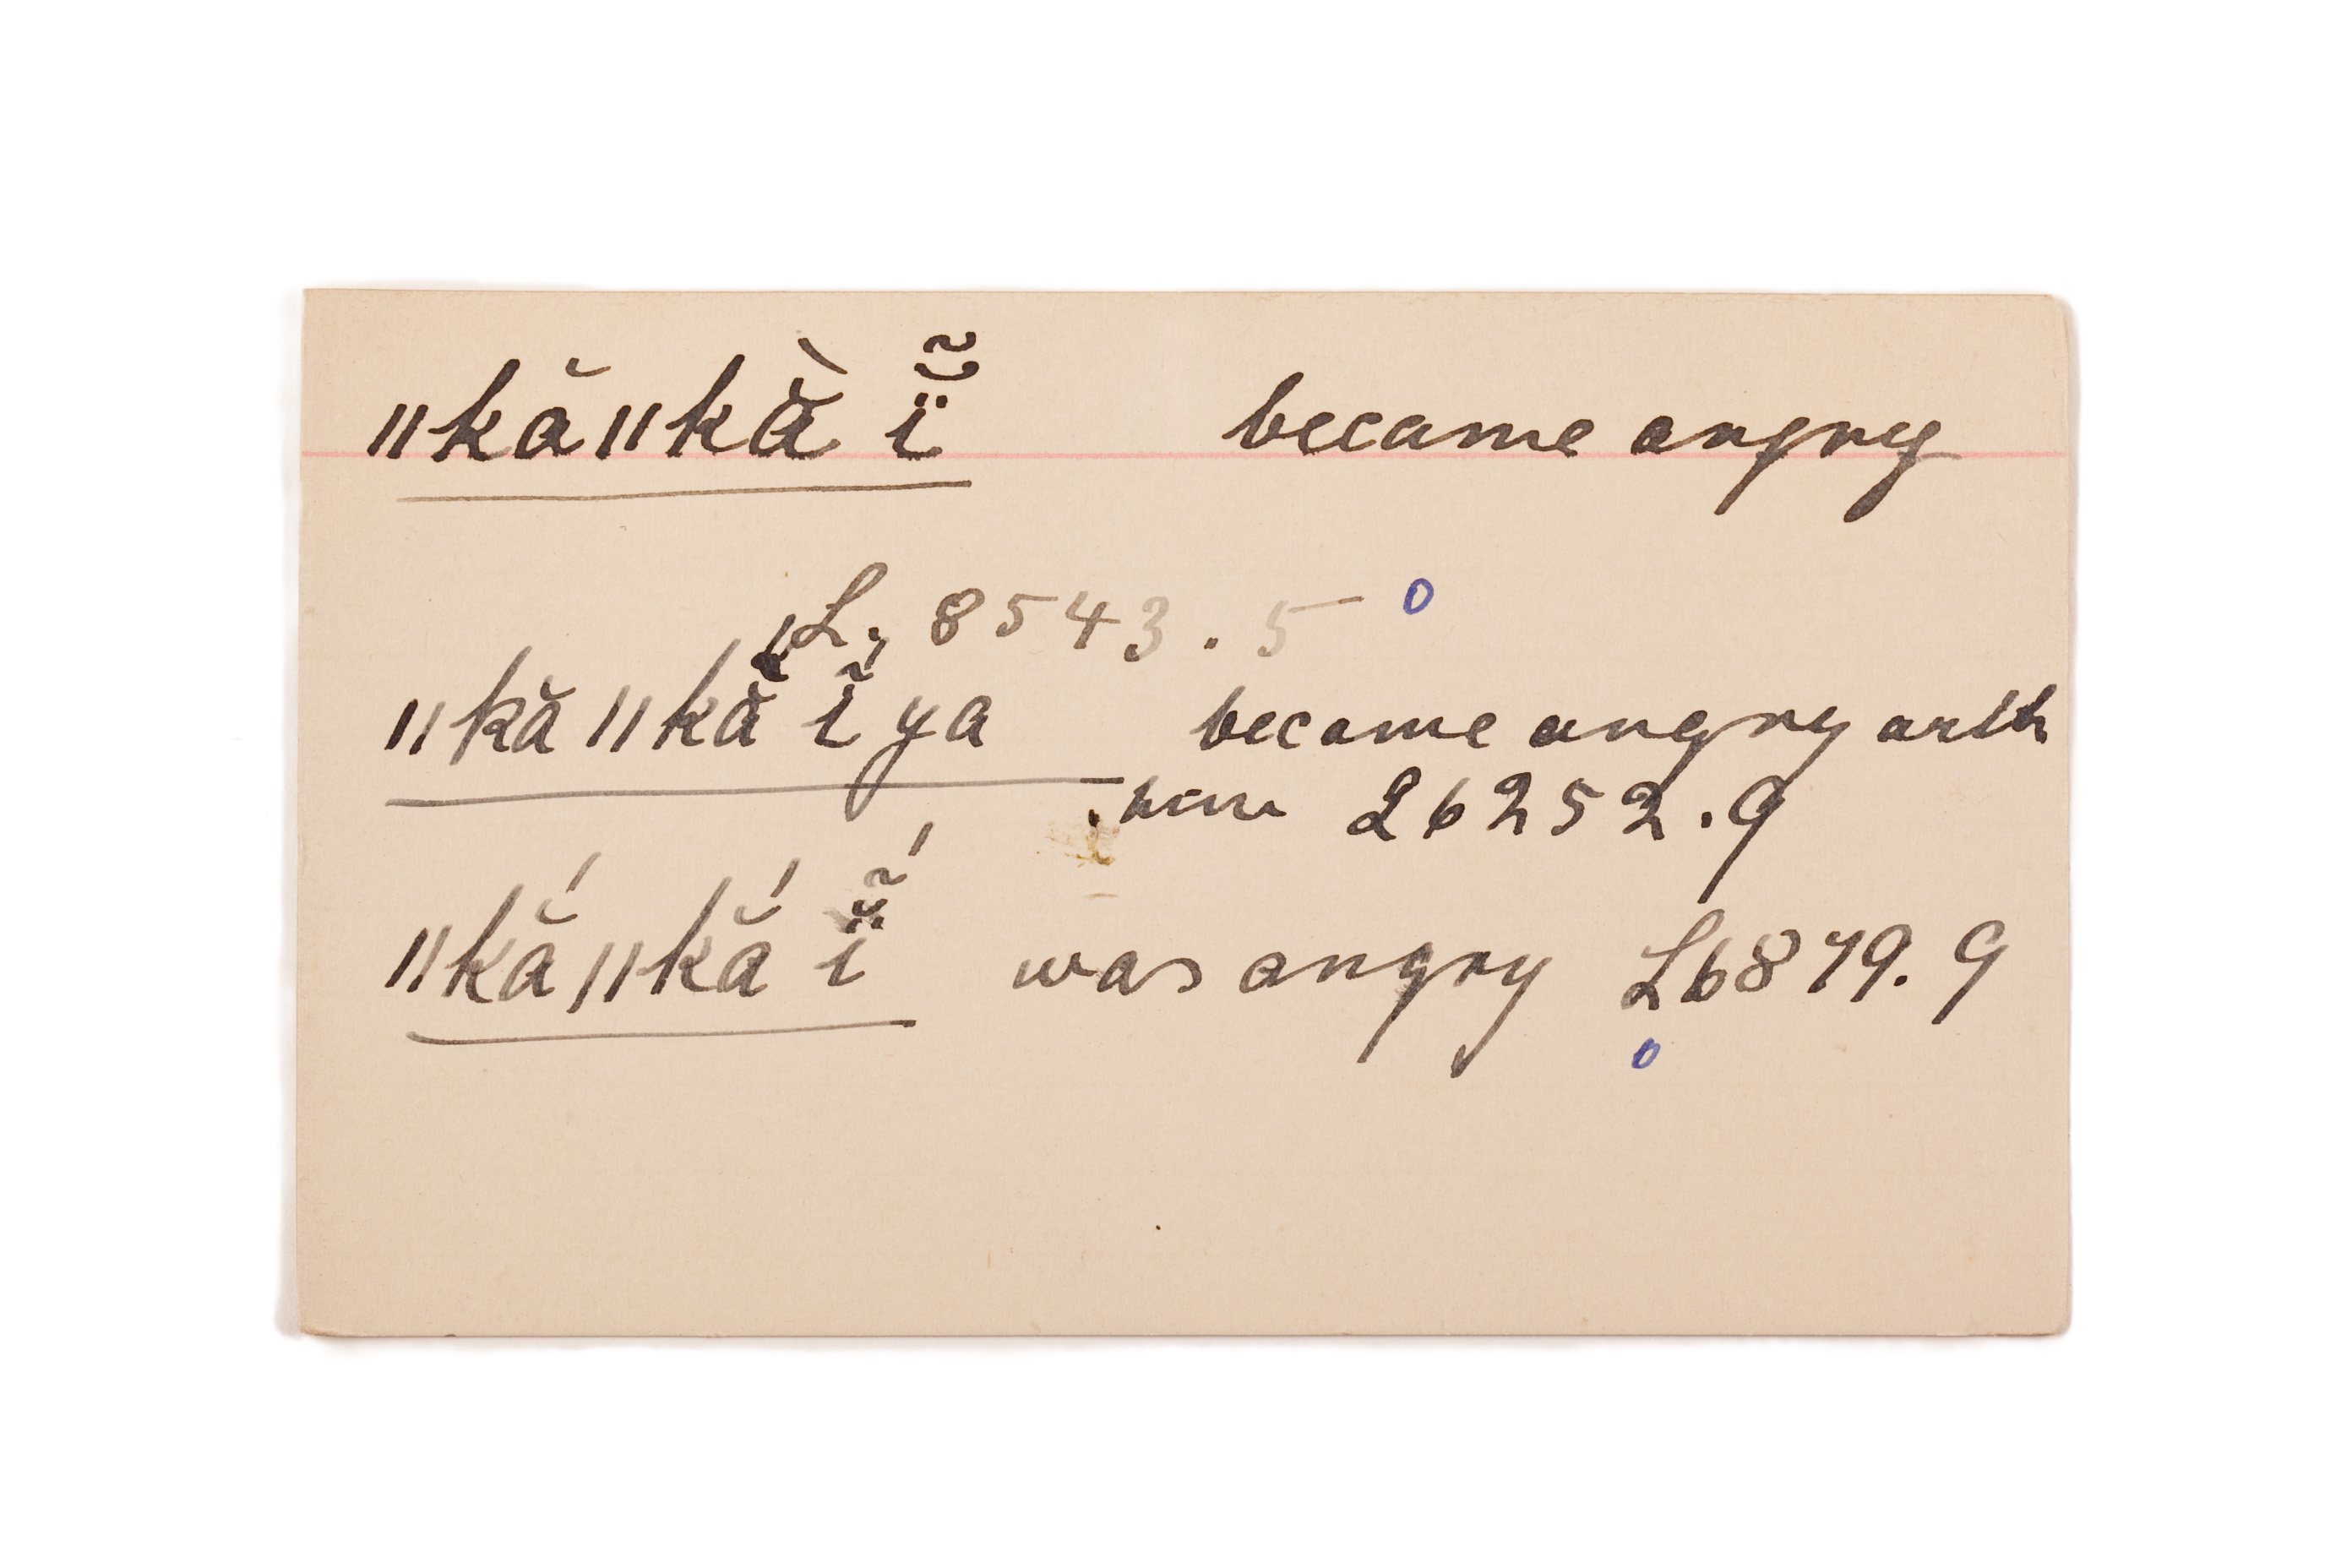 ǁkăǁkằ ĭ̯̈̃ became angry
L. 8543.5 o
ǁkăǁkắ ĭ̃́ ya became angry with
him L6252.9
ǁkắǁkắ ĭ̯̈̃́ was angry L6879.9
o